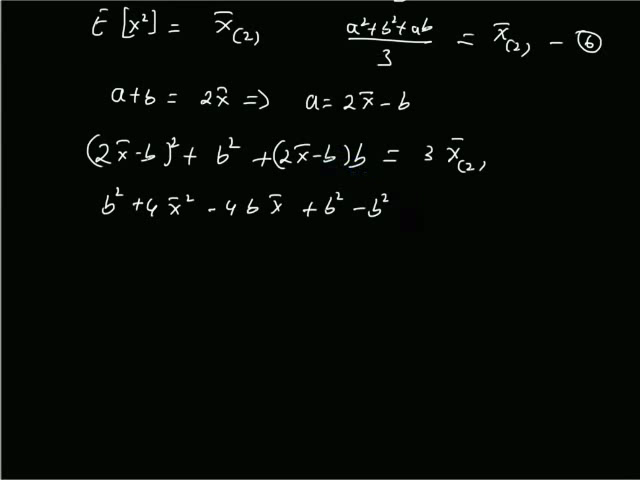 E[x²] = x̄₍₂₎ (a²+b²+ab)/3 = x̄₍₂₎ – ⑥
a+b = 2x̄ => a = 2x̄ – b
(2x̄–b)² + b² + (2x̄–b)b = 3 x̄₍₂₎
b² + 4x̄² – 4bx̄ + b² – b²